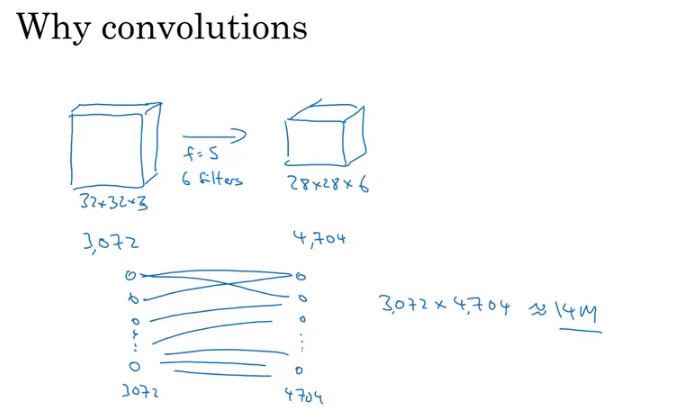 Why convolutions
f=5
6 filters
32×32×3
28×28×6
3,072
4,704
3,072 × 4,704 ≈ 14M
3072
4704